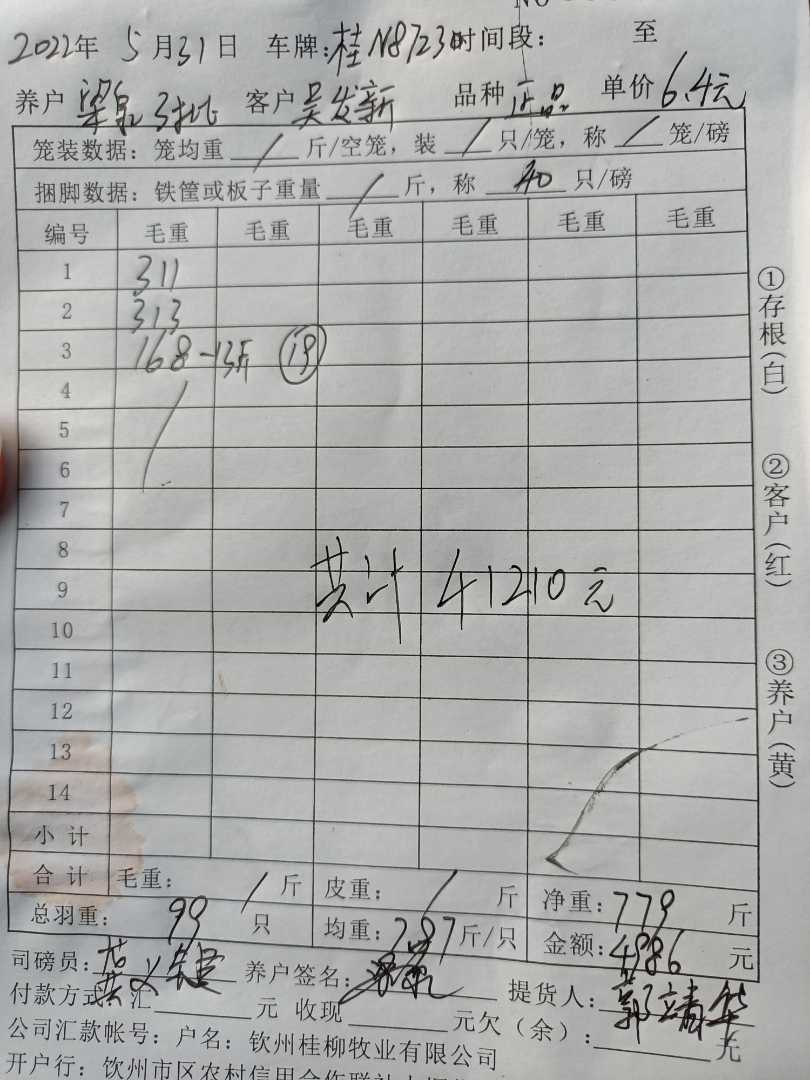 2022年 5月31日 车牌:桂N8723时间段: 至
养户 梁泉3批 客户吴发新 品种 正品 单价6.4元
笼装数据: 笼均重 / 斤/空笼, 装 / 只/笼, 称 / 笼/磅
捆脚数据: 铁筐或板子重量 / 斤, 称 40 只/磅
编号 毛重 毛重 毛重 毛重 毛重 毛重
1 311
2 313
3 168-13斤 19
4
5
6
7
8
9
共计 41210元
10
11
12
13
14
小 计
合 计 毛重: / 斤 皮重: / 斤 净重:779 斤
总羽重: 99 只 均重:7.87斤/只 金额:4986 元
司磅员: 养户签名: 提货人:郭靖华
付款方式 汇 元 收现 元欠(余): 元
公司汇款帐号: 户名: 钦州桂柳牧业有限公司
开户行: 钦州市区农村信用合作联社
①存根(白)
②客户(红)
③养户(黄)